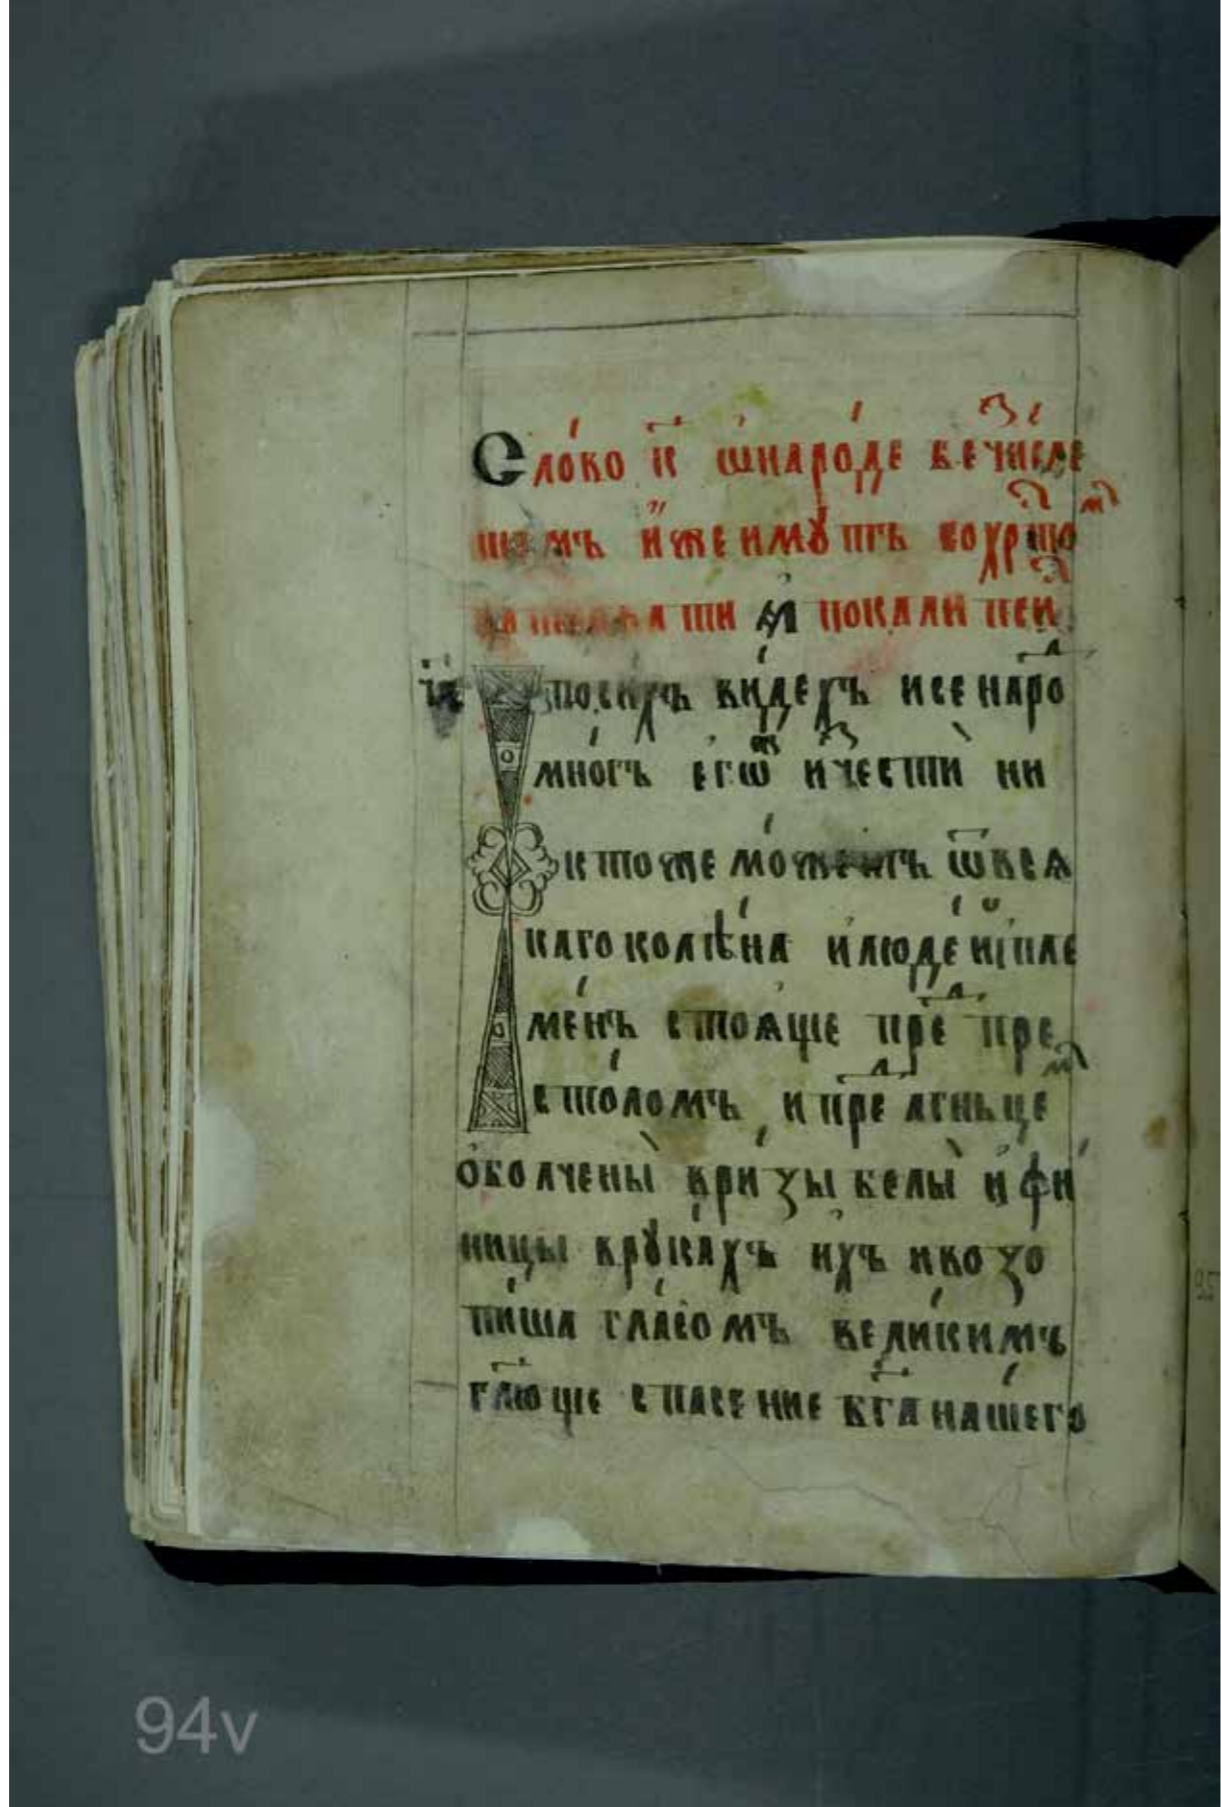 Сло́во к҃ ѡ҆наро́де беꙁчи́сле
немъ и҆̀же имꙋтъ воцр҃ᲂ
поⷭ҇и́хъ ви́дехъ исе наро́ⷣ
мно́гъ его́ѡⷤ иꙁчестѝ ни
ктоже мо́жетъ ѿвсѧ
каго колѣ́на и҆люде́й и҆пле
ме́нъ стоѧ҆ще преⷣ пре
сто́ломъ и преⷣ агньцеⷨ
ѡ҆болчены̀ ври́зы белы̀ и҆ фи́
ницы врꙋка́хъ и҆хъ ивоꙁо
пи́ша гла́сомъ вели́кимъ
гл҃юще спасение бг҃а на́шего
94v